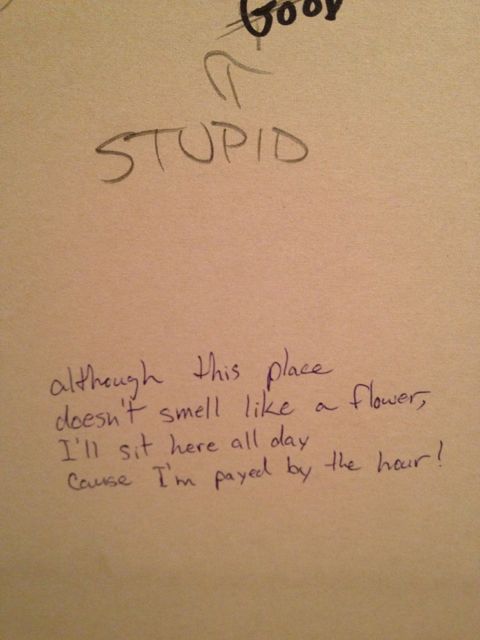 GOOD
STUPID
although this place
doesn't smell like a flower,
I'll sit here all day
cause I'm payed by the hour!